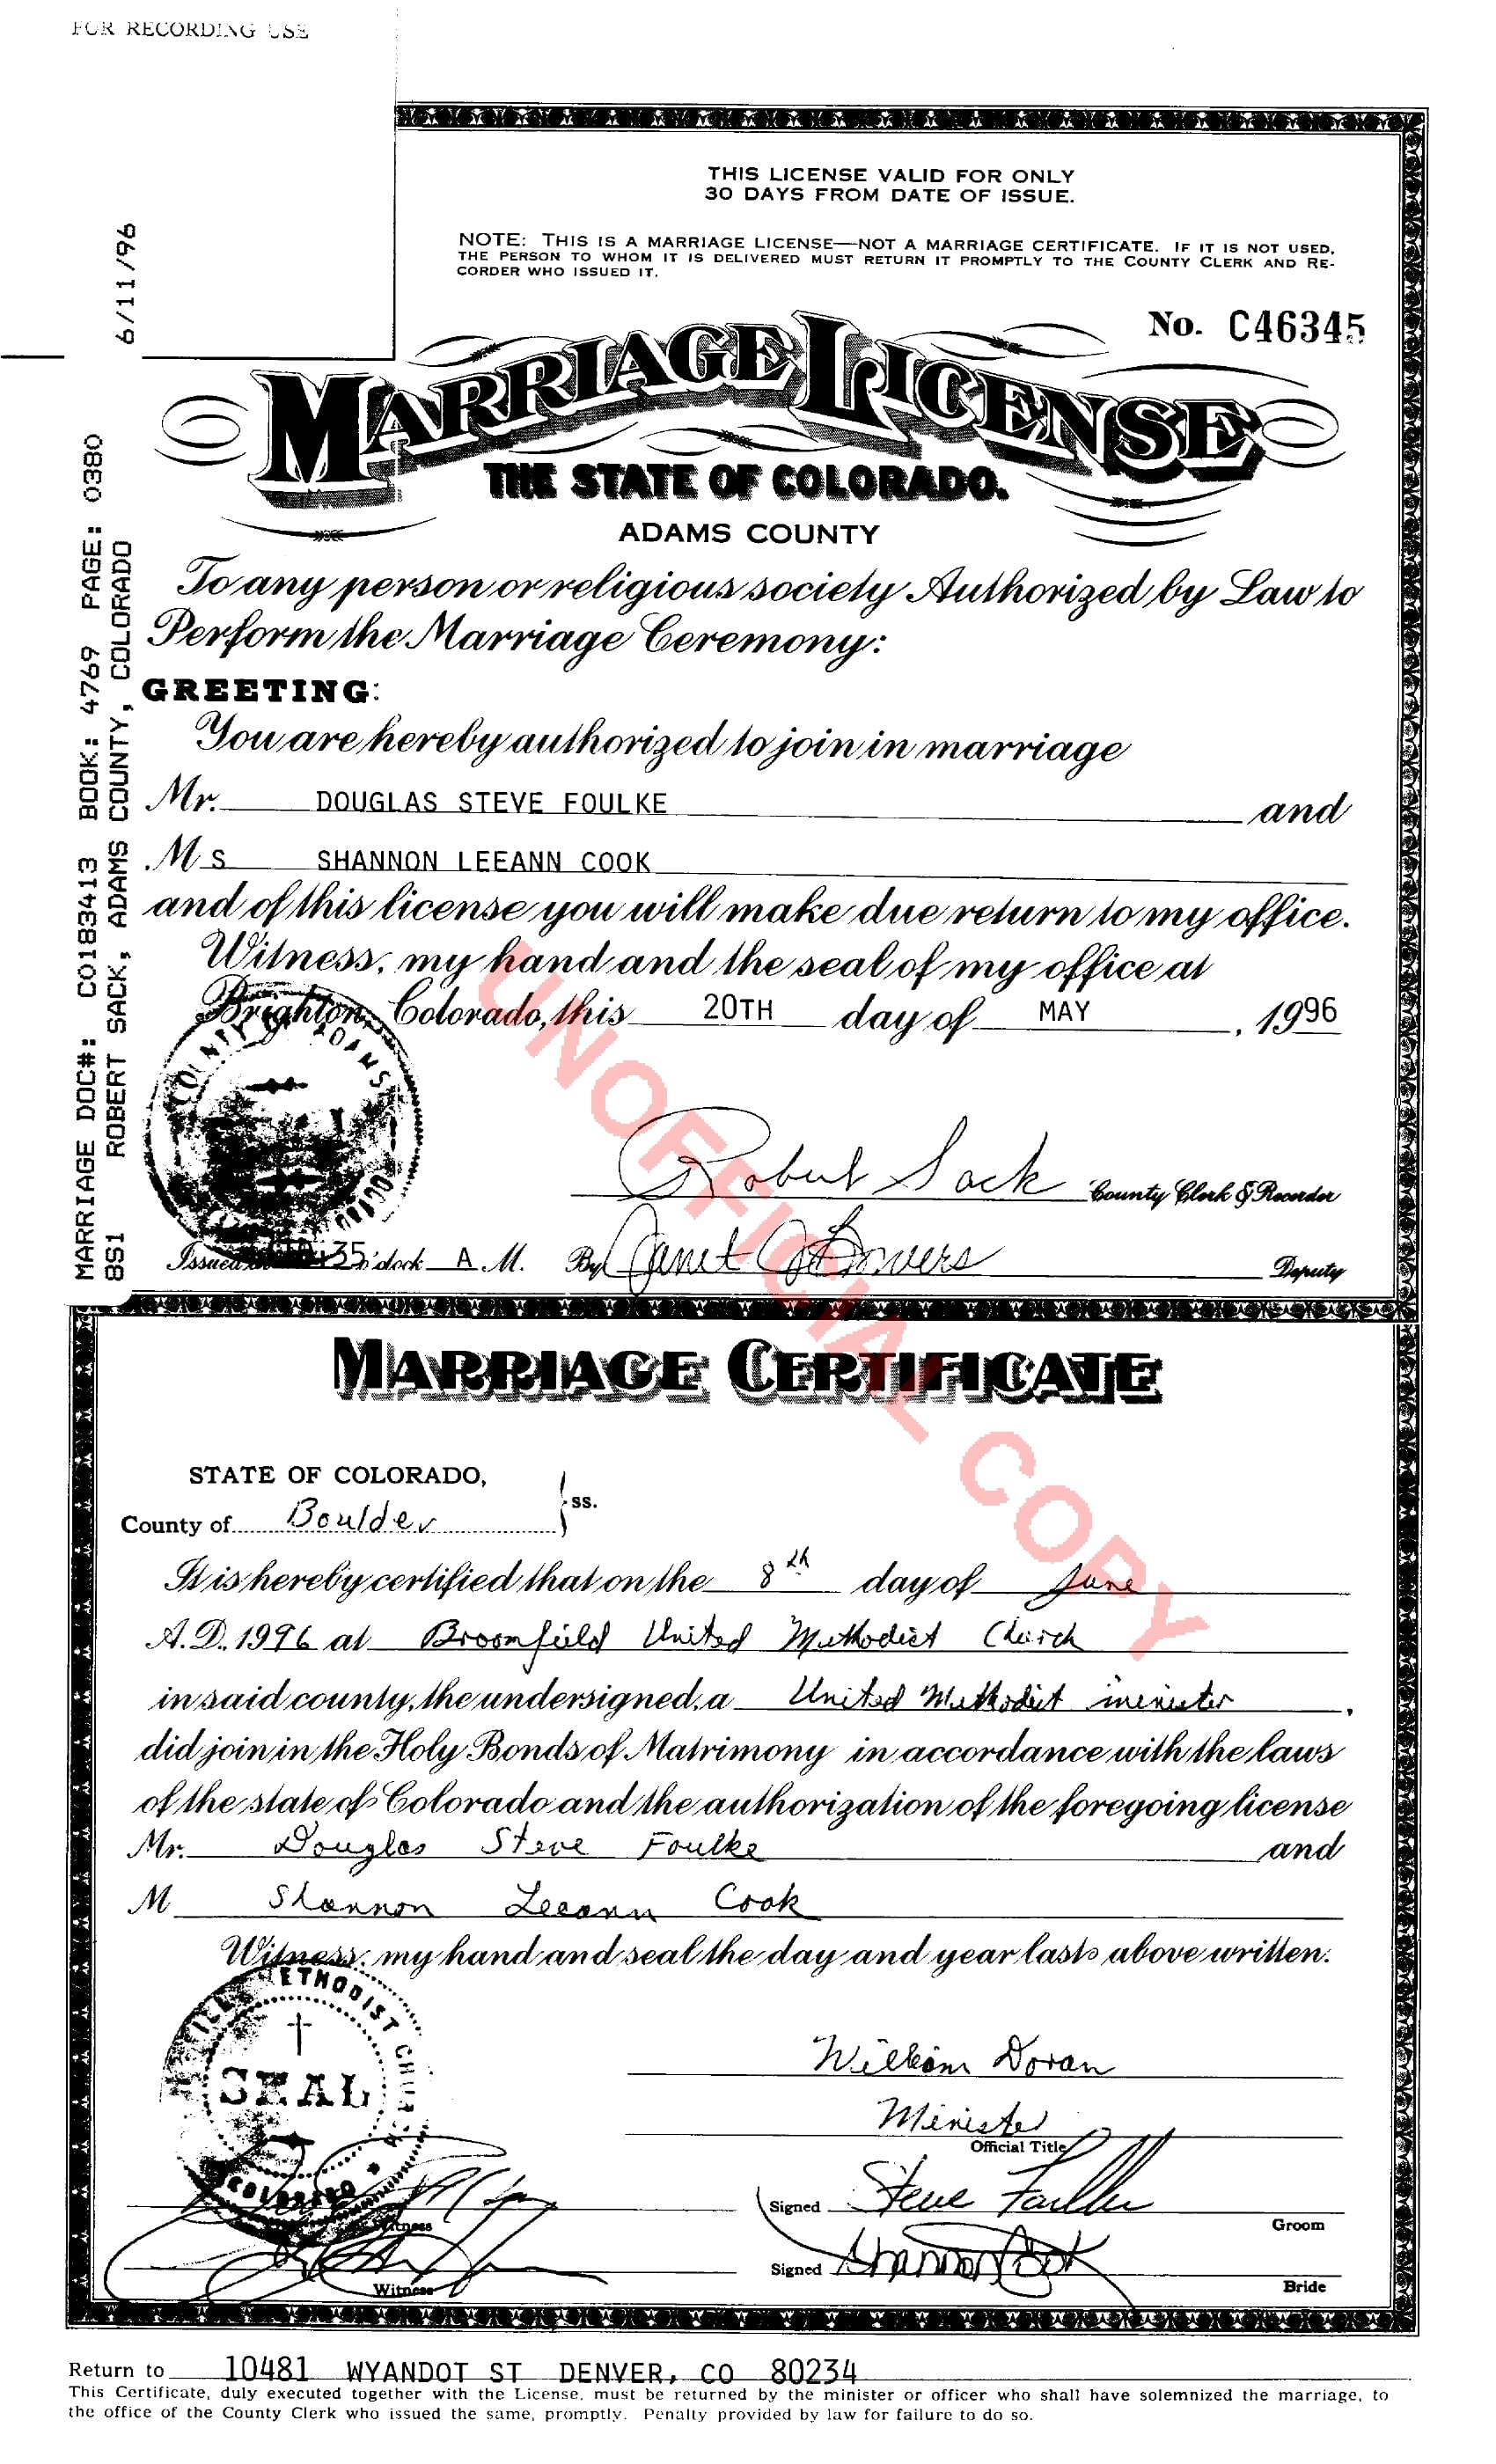 FOR RECORDING USE
THIS LICENSE VALID FOR ONLY
30 DAYS FROM DATE OF ISSUE.
NOTE: THIS IS A MARRIAGE LICENSE—NOT A MARRIAGE CERTIFICATE. IF IT IS NOT USED,
THE PERSON TO WHOM IT IS DELIVERED MUST RETURN IT PROMPTLY TO THE COUNTY CLERK AND RE-
CORDER WHO ISSUED IT.
No. C46345
MARRIAGE LICENSE
THE STATE OF COLORADO.
ADAMS COUNTY
MARRIAGE DOC#: C0183413 BOOK: 4769 PAGE: 0380 6/11/96
8S1 ROBERT SACK, ADAMS COUNTY, COLORADO
To any person or religious society Authorized by Law to
Perform the Marriage Ceremony:
GREETING:
You are hereby authorized to join in marriage
Mr. DOUGLAS STEVE FOULKE and
Ms SHANNON LEEANN COOK
and of this license you will make due return to my office.
Witness, my hand and the seal of my office at
Brighton, Colorado, this 20TH day of MAY, 1996
COUNTY OF ADAMS
Robert Sack County Clerk & Recorder
Issued 35 o'clock A. M. By Janet Deputy
UNOFFICIAL COPY
MARRIAGE CERTIFICATE
STATE OF COLORADO,
County of Boulder ss.
It is hereby certified that on the 8th day of June
A. D. 1996 at Broomfield United Methodist Church
in said county, the undersigned, a United Methodist minister,
did join in the Holy Bonds of Matrimony in accordance with the laws
of the state of Colorado and the authorization of the foregoing license
Mr. Douglas Steve Foulke and
M Shannon Leeann Cook
Witness, my hand and seal the day and year lasts above written.
METHODIST CHURCH
SEAL
COLORADO
William Doran
Minister
Official Title
Witness
Signed Steve Foulke
Groom
Witness
Signed Shannon Cook
Bride
Return to 10481 WYANDOT ST DENVER, CO 80234
This Certificate, duly executed together with the License, must be returned by the minister or officer who shall have solemnized the marriage, to
the office of the County Clerk who issued the same, promptly. Penalty provided by law for failure to do so.